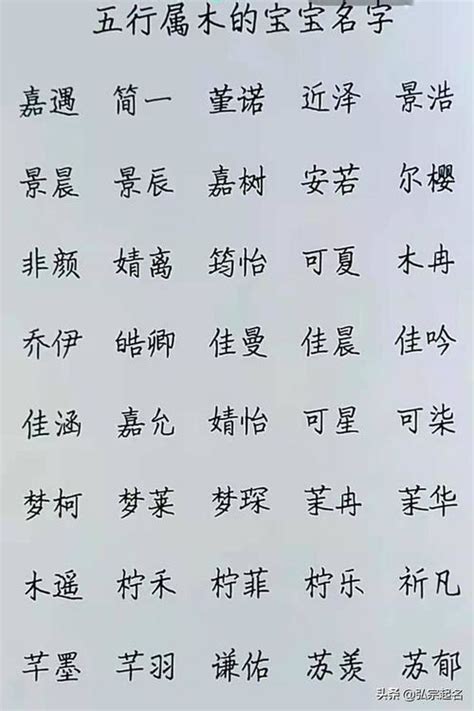 五行属木的宝宝名字
嘉遇 简一 董诺 近泽 景浩
景晨 景辰 嘉树 安若 尔樱
非颜 婧离 筠怡 可夏 木冉
乔伊 皓卿 佳曼 佳晨 佳吟
佳涵 嘉允 婧怡 可星 可柒
梦柯 梦莱 梦琛 茉冉 茉华
木遥 柠禾 柠菲 柠乐 祈凡
芊墨 芊羽 谦佑 苏羡 苏郁
头条 @弘宗起名